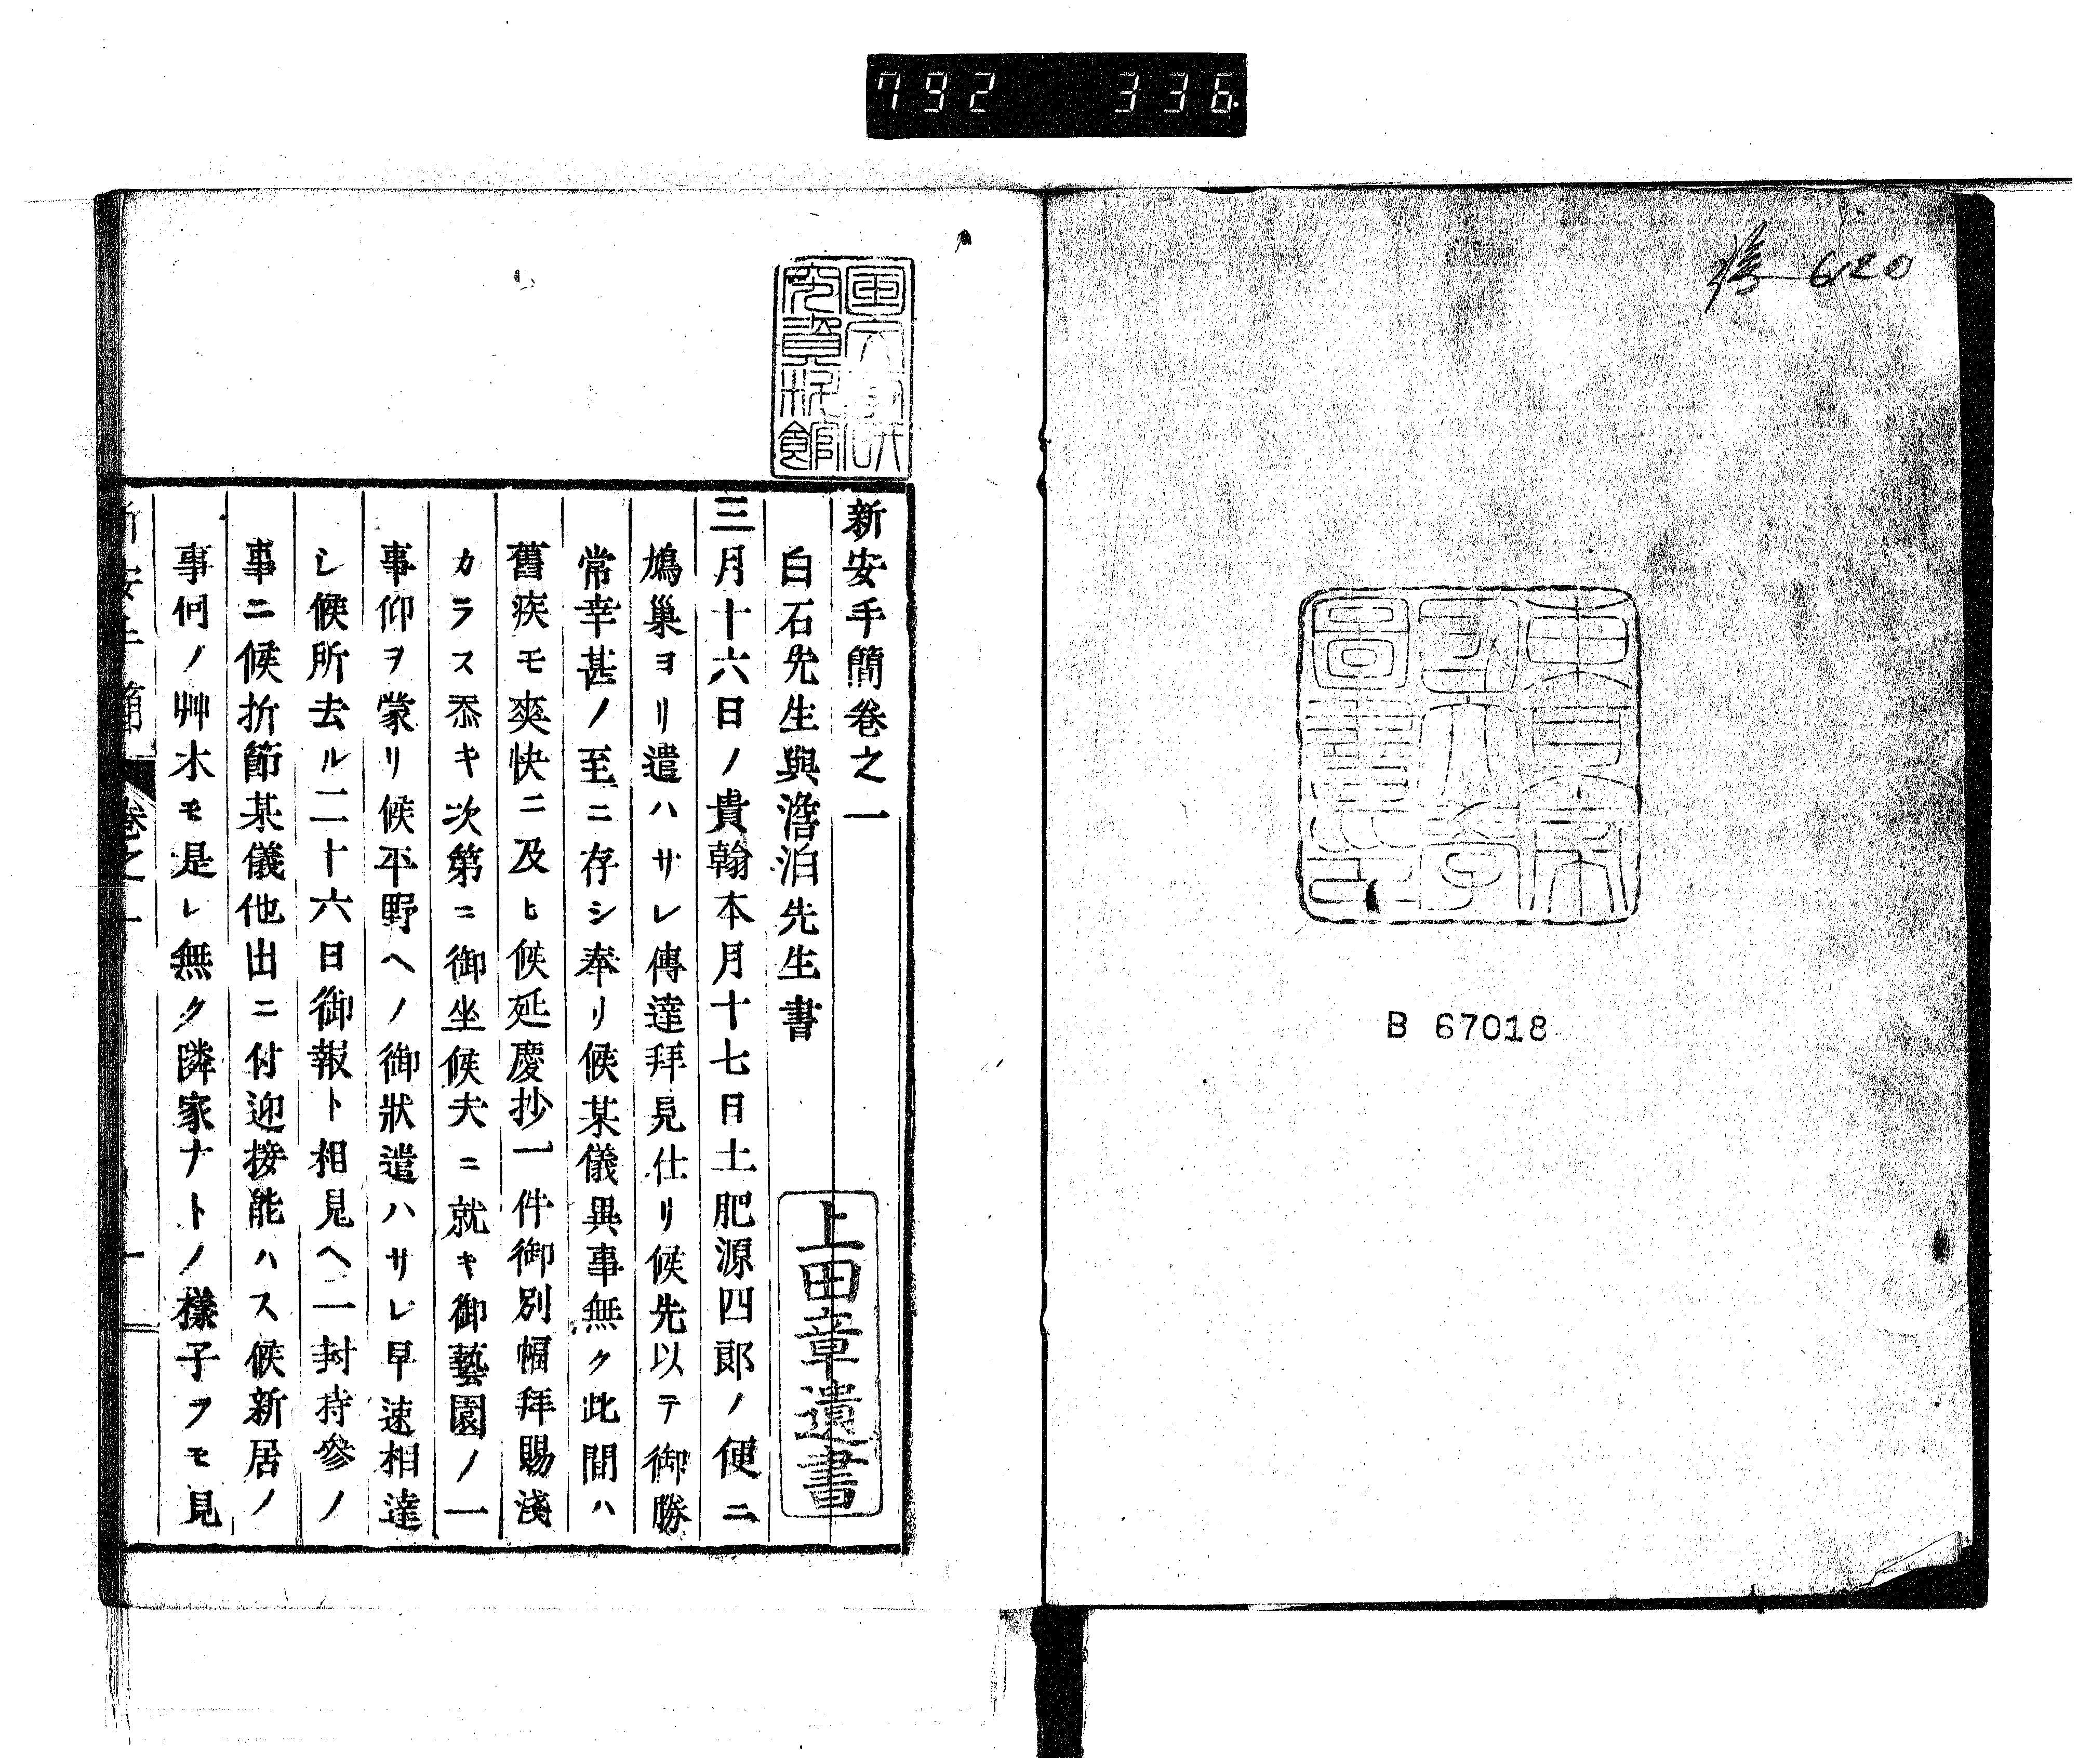 792 336
㐧620
東京帝
國大學
圖書印
B 67018
國文學研
究資料館
新安手簡卷之一
白石先生與澹泊先生書
上田章遺書
三月十六日ノ貴翰本月十七日土肥源四郎ノ便ニ
鳩巢ヨリ遣ハサレ傳達拜見仕リ候先以テ御勝
常幸甚ノ至ニ存シ奉リ候某儀異事無ク此間ハ
舊疾モ爽快ニ及ヒ候延慶抄一件御別幅拜賜淺
カラス忝キ次第ニ御坐候夫ニ就キ御藝園ノ一
事仰ヲ蒙リ候平野ヘノ御狀遣ハサレ早速相達
シ候所去ル二十六日御報ト相見ヘ一封持參ノ
事ニ候折節某儀他出ニ付迎接能ハス候新居ノ
事何ノ艸木モ是レ無ク隣家ナトノ樣子ヲモ見
新安手簡 卷之一 一